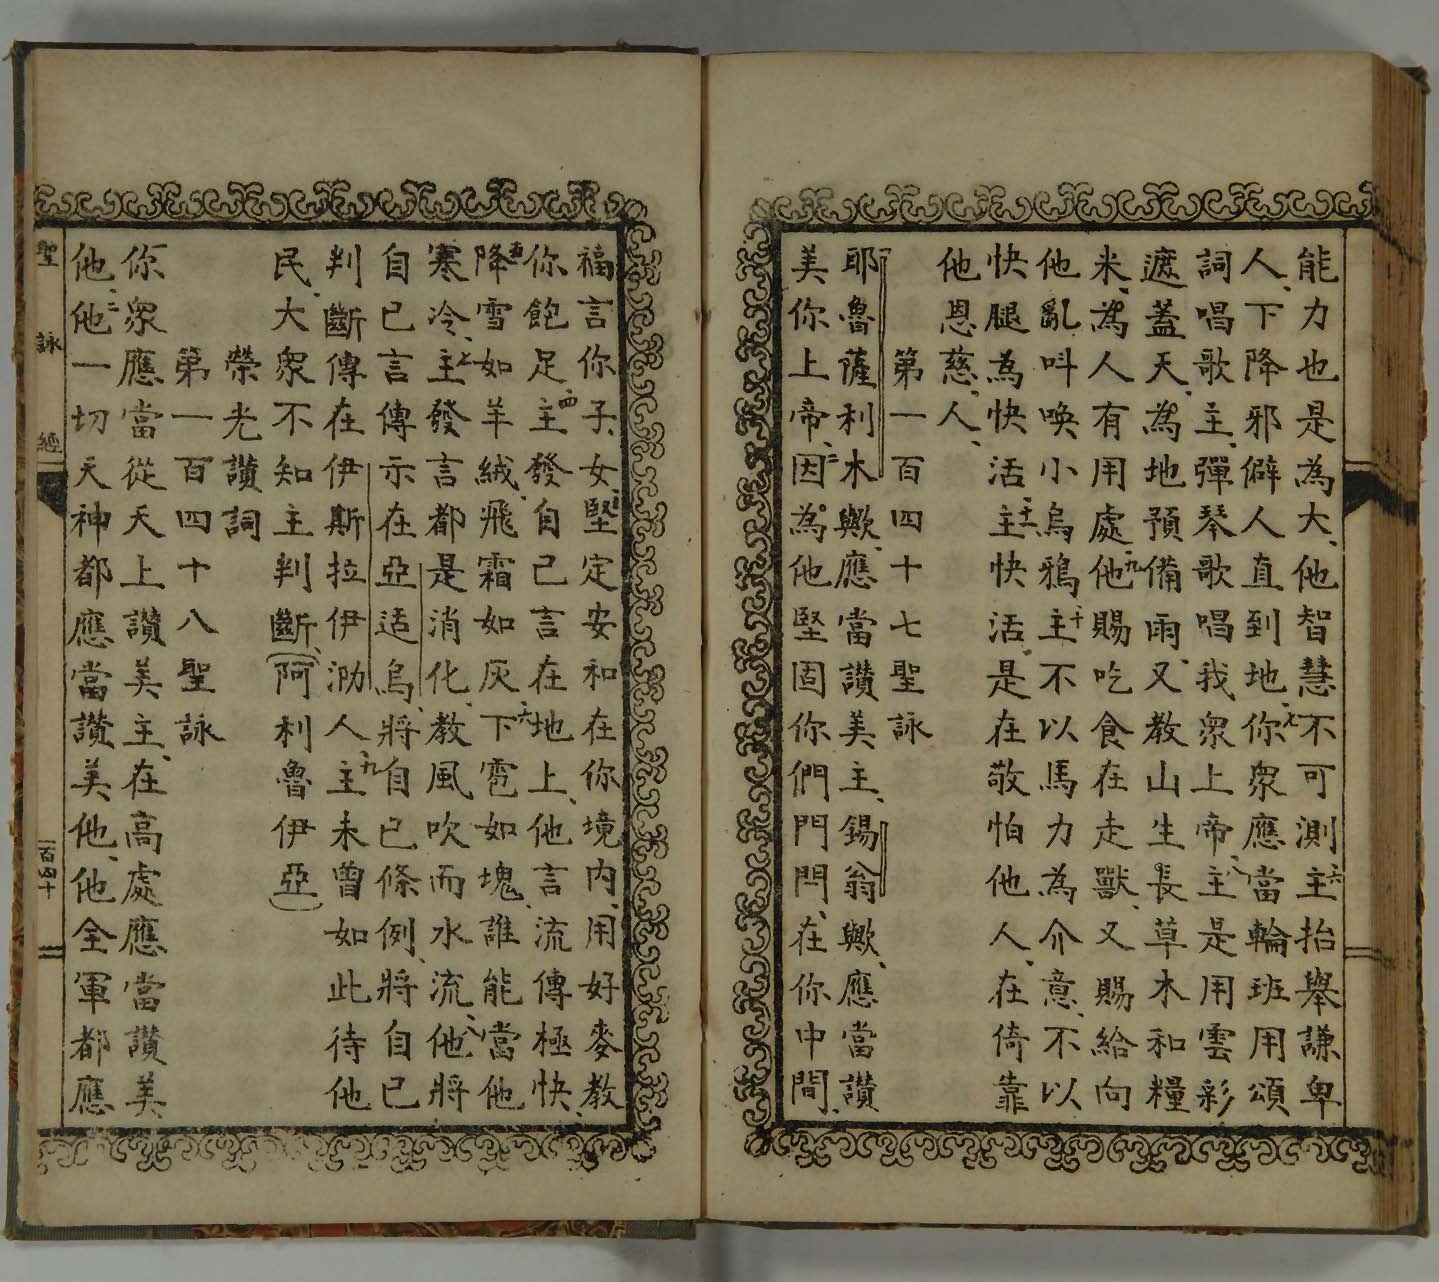 能力也是為大、他智慧不可測、六主抬舉謙卑
人、下降邪僻人直到地、七你衆應當輪班用頌
詞唱歌主、彈琴歌唱我衆上帝、八主是用雲彩
遮蓋天、為地預備雨、又教山生長草木和糧
米、為人有用處、九他賜吃食在走獸、又賜給向
他亂呌喚小烏鴉、十主不以馬力為介意、不以
快腿為快活、十一主快活是在敬怕他人、在倚靠
他恩慈人、
第一百四十七聖詠
耶魯薩利木歟、應當讚美主、錫翁歟、應當讚
美你上帝、二因為他堅固你們門閂、在你中間、
福言你子女、三堅定安和在你境内、用好麥教
你飽足、四主發自己言在地上、他言流傳極快、
五降雪如羊絨、飛霜如灰、六下雹如塊、誰能當他
寒冷、七主發言都是消化、教風吹而水流、八他將
自己言傳示在亞适烏、將自己條例、將自己
判斷傳在伊斯拉伊泐人、九主未曾如此待他
民、大衆不知主判斷、(阿利魯伊亞)
榮光讚詞
第一百四十八聖詠
你衆應當從天上讚美主、在高處應當讚美
他、二他一切天神都應當讚美他、他全軍都應
聖詠經
一百四十